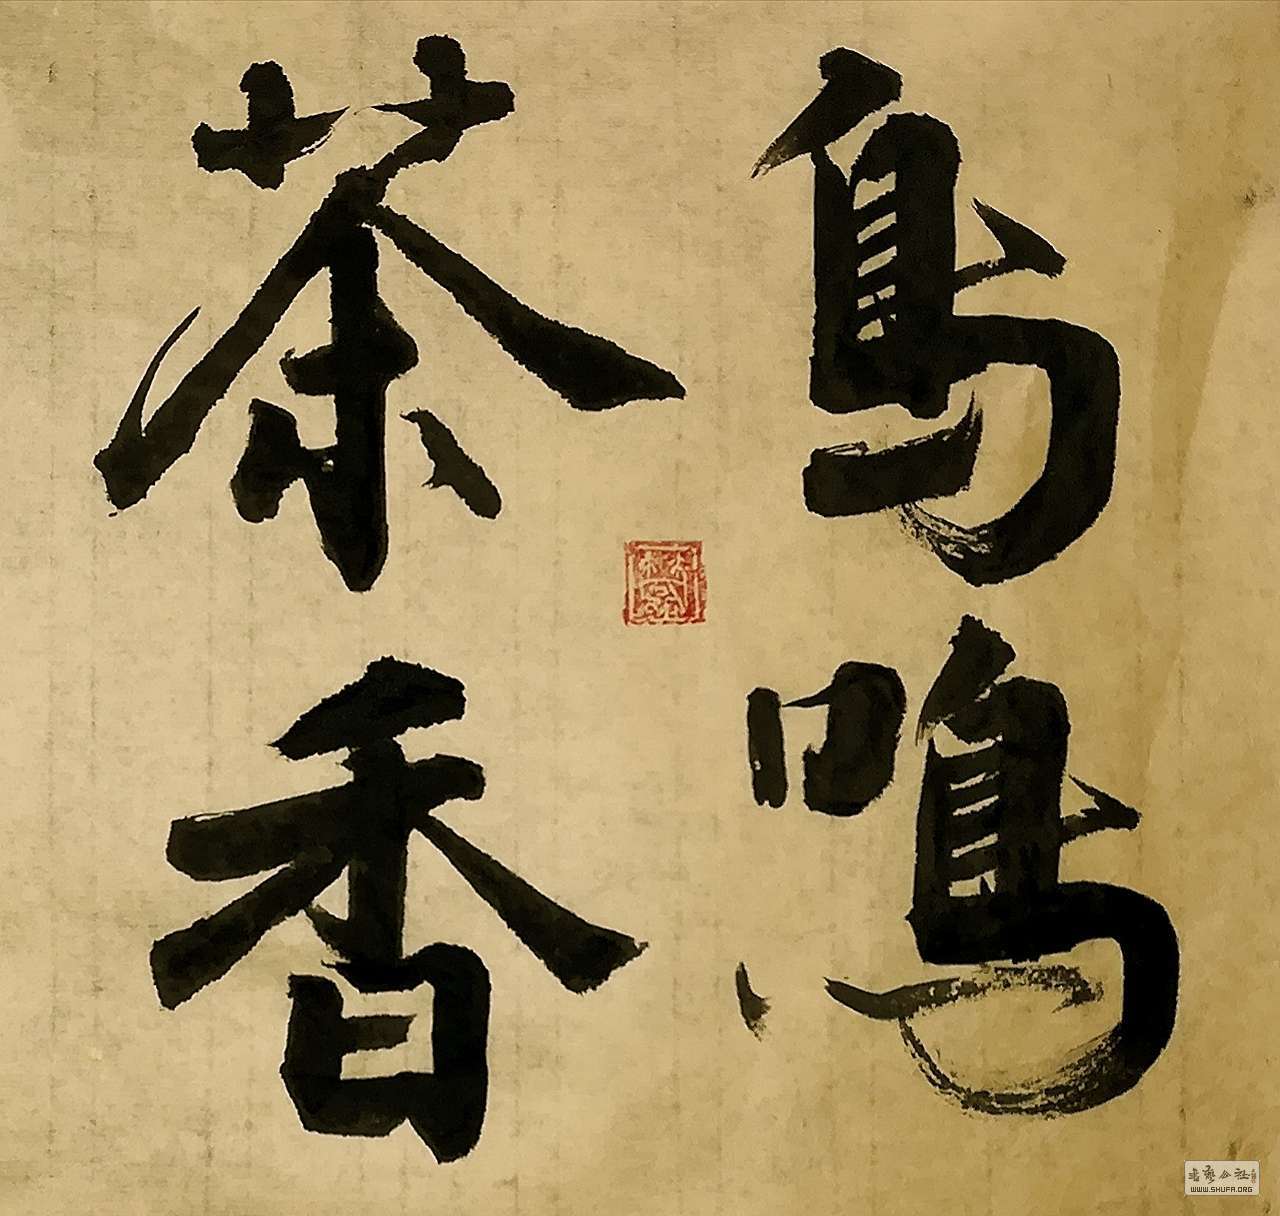 鳥鳴
茶香
書藝公社
WWW.SHUFA.ORG